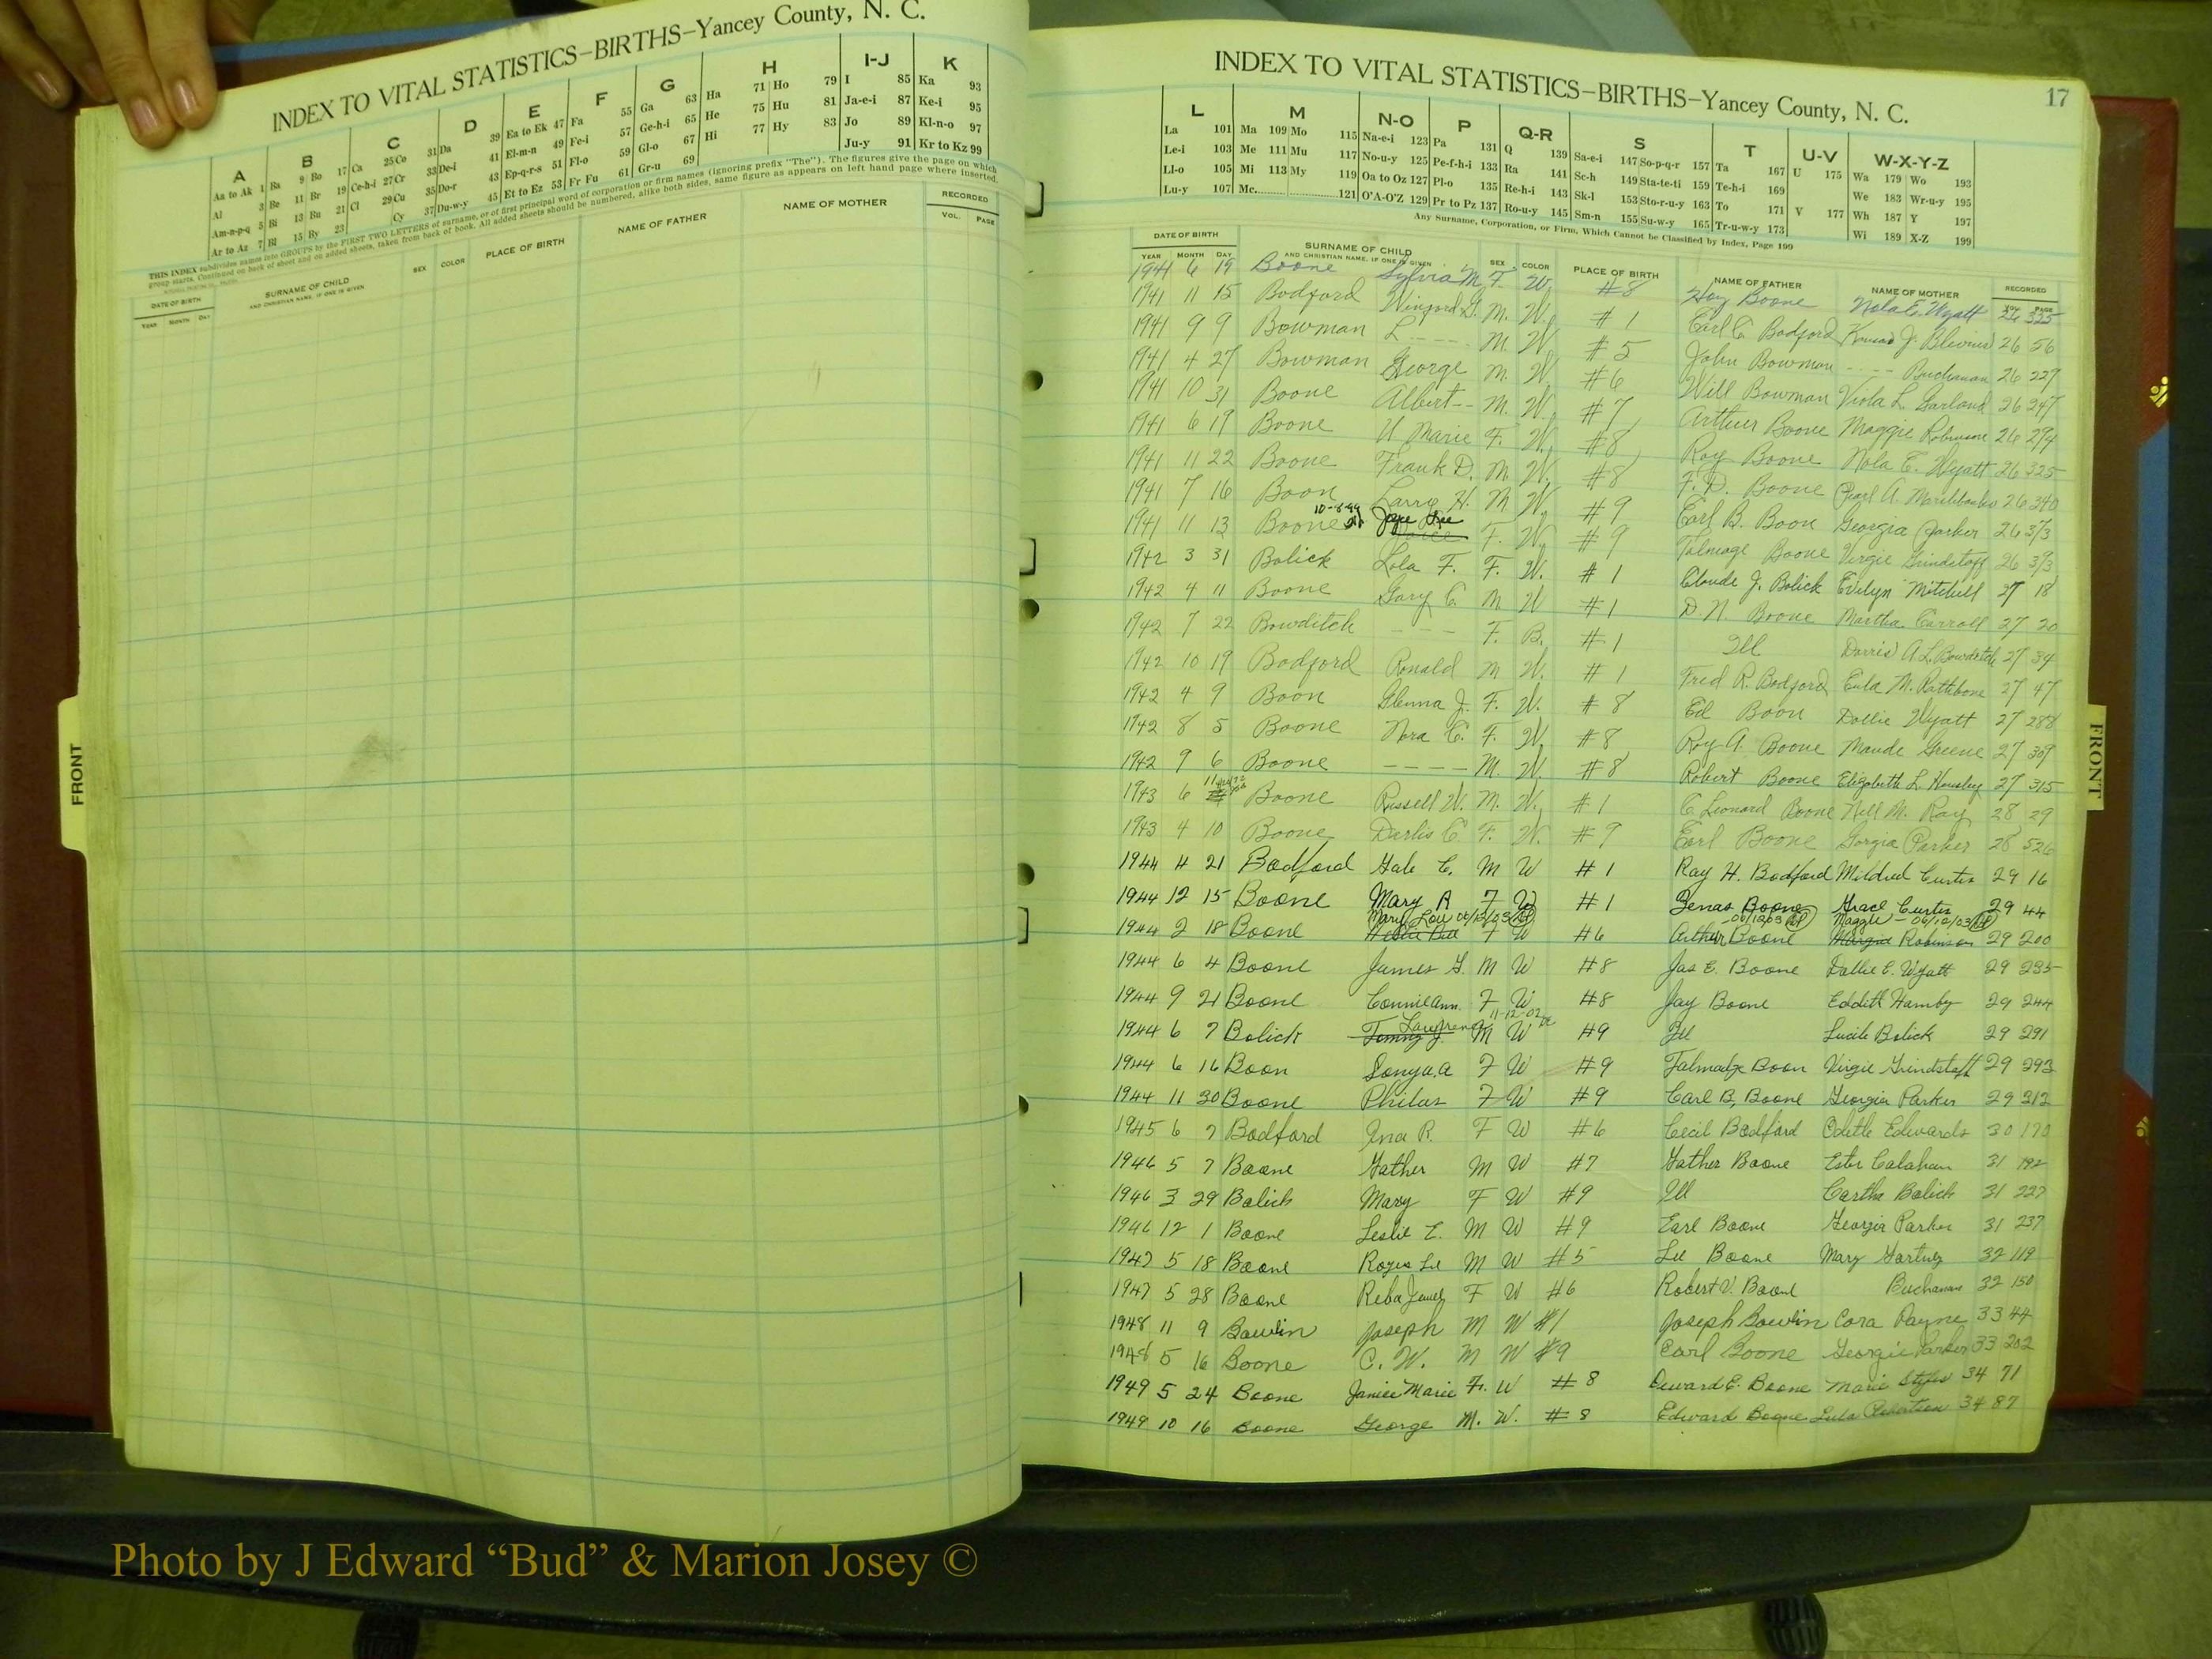 INDEX TO VITAL STATISTICS–BIRTHS–Yancey County, N. C.
A B C D E F G H I-J K
Aa to Ak 1 Ba 9 Bo 17 Ca 25 Co 31 Da 39 Ea to Ek 47 Fa 55 Ga 63 Ha 71 Ho 79 I 85 Ka 93
Al 3 Be 11 Br 19 Ce-h-i 27 Cr 33 De-i 41 El-m-n 49 Fe-i 57 Ge-h-i 65 He 75 Hu 81 Ja-e-i 87 Ke-i 95
Am-n-p-q 5 Bi 13 Bu 21 Cl 29 Cu 35 Do-r 43 Ep-q-r-s 51 Fl-o 59 Gl-o 67 Hi 77 Hy 83 Jo 89 Kl-n-o 97
Ar to Az 7 Bl 15 By 23 Cy 37 Du-w-y 45 Et to Ez 53 Fr Fu 61 Gr-u 69 Ju-y 91 Kr to Kz 99
THIS INDEX subdivides names into GROUPS by the FIRST TWO LETTERS of surname, or of first principal word of corporation or firm names (ignoring prefix "The"). The figures give the page on which
group starts. Continued on back of sheet and on added sheets, taken from back of book. All added sheets should be numbered, alike both sides, same figure as appears on left hand page where inserted.
DATE OF BIRTH SURNAME OF CHILD SEX COLOR PLACE OF BIRTH NAME OF FATHER NAME OF MOTHER RECORDED
YEAR MONTH DAY AND CHRISTIAN NAME, IF ONE IS GIVEN VOL. PAGE
FRONT
INDEX TO VITAL STATISTICS–BIRTHS–Yancey County, N. C. 17
L M N-O P Q-R S T U-V W-X-Y-Z
La 101 Ma 109 Mo 115 Na-e-i 123 Pa 131 Q 139 Sa-e-i 147 So-p-q-r 157 Ta 167 U 175 Wa 179 Wo 193
Le-i 103 Me 111 Mu 117 No-u-y 125 Pe-f-h-i 133 Ra 141 Sc-h 149 Sta-te-ti 159 Te-h-i 169 We 183 Wr-u-y 195
Ll-o 105 Mi 113 My 119 Oa to Oz 127 Pl-o 135 Re-h-i 143 Sk-l 153 Sto-r-u-y 163 To 171 V 177 Wh 187 Y 197
Lu-y 107 Mc 121 O'A-O'Z 129 Pr to Pz 137 Ro-u-y 145 Sm-n 155 Su-w-y 165 Tr-u-w-y 173 Wi 189 X-Z 199
Any Surname, Corporation, or Firm, Which Cannot be Classified by Index, Page 199
DATE OF BIRTH SURNAME OF CHILD SEX COLOR PLACE OF BIRTH NAME OF FATHER NAME OF MOTHER RECORDED
YEAR MONTH DAY AND CHRISTIAN NAME, IF ONE IS GIVEN VOL. PAGE
1941 6 19 Boone Sylvia M. F. W. #8 Boone Nola E. Wyatt 26 325
1941 11 15 Bodford Winford G. M. W. #1 Earl C. Bodford J. Blevins 26 56
1941 9 9 Bowman L---- M. W. #5 John Bowman ---- Buchanan 26 227
1941 4 27 Bowman George M. W. #6 Will Bowman Viola L. Garland 26 247
1941 10 31 Boone Albert-- M. W. #7 Arthur Boone Maggie Robinson 26 294
1941 6 19 Boone U Marie F. W. #8 Roy Boone Nola E. Wyatt 26 325
1941 11 22 Boone Frank D. M. W. #8 F. D. Boone Pearl A. 26 340
1941 7 16 Boon Larry H. M W. #9 Earl B. Boon Georgia Parker 26 373
1941 11 13 Boone Lee F. W. #9 Talmage Boone Virgie Grindstaff 26 393
1942 3 31 Bolick Lola F. F. W. #1 Claude J. Bolick Evelyn Mitchell 27 18
1942 4 11 Boone Gary C. M. W #1 D. N. Boone Martha Carroll 27 20
1942 7 22 Bowditch --- F. B. #1 Ill Dorris A. L. Bowditch 27 34
1942 10 19 Bodford Ronald M W. #1 Fred R. Bodford Eula M. Rathbone 27 47
1942 4 9 Boon Glenna J. F. W. #8 Ed Boon Dollie Wyatt 27 288
1942 8 5 Boone Nora C. F. W. #8 Roy A. Boone Maude Greene 27 309
1942 9 6 Boone ---- M. W. #8 Robert Boone Elizabeth L. Hensley 27 315
1943 6 11 Boone Russell W. M. W. #1 C Leonard Boone Nell M. Ray 28 29
1943 4 10 Boone Derlis C. F. W. #9 Earl Boone Gorgia Parker 28 526
1944 4 21 Bodford Gale C. M W #1 Ray H. Bodford Mildred Curtis 29 16
1944 12 15 Boone Mary A F W #1 Zenas Boone Grace Curtis 29 44
Mary Lou 06/12/03 06/12/03 Maggie - 06/12/03
1944 2 18 Boone F W #6 Arthur Boone Margie Robinson 29 200
1944 6 4 Boone James G. M W #8 Jas E. Boone Dallie E. Wyatt 29 235
1944 9 21 Boone Connie Ann. F W #8 Jay Boone Eddith Hamby 29 244
Lawrence 11-12-02
1944 6 7 Bolick Tommy J. M W #9 Ill Lucile Bolick 29 291
1944 6 16 Boon Sonya. A F W #9 Talmadge Boon Virgie Grindstaff 29 293
1944 11 30 Boone F W #9 Carl B. Boone Georgia Parker 29 312
1945 6 7 Bodford Ina R. F W #6 Cecil Bodford Odeth Edwards 30 170
1946 5 7 Boone Gather M W #7 Gather Boone Ester Calahan 31 192
1946 3 29 Bolick Mary F W #9 Ill Cartha Bolick 31 227
1946 12 1 Boone Leslie E. M W #9 Earl Boone Georgia Parker 31 237
1947 5 18 Boone Roger Lee M W #5 Lee Boone Mary 32 119
1947 5 28 Boone Reba Jewel F W #6 Robert V. Boone Buchanan 32 150
1948 11 9 Bowlin Joseph M W #1 Joseph Bowlin Cora Payne 33 44
1948 5 16 Boone C. W. M W #9 Carl Boone Georgie Parker 33 202
1949 5 24 Boone Janice Marie F. W #8 E. Boone Marie Styles 34 71
1949 10 16 Boone George M. W. #8 Edward Boone Lula Robertson 34 87
FRONT
Photo by J Edward “Bud” & Marion Josey ©